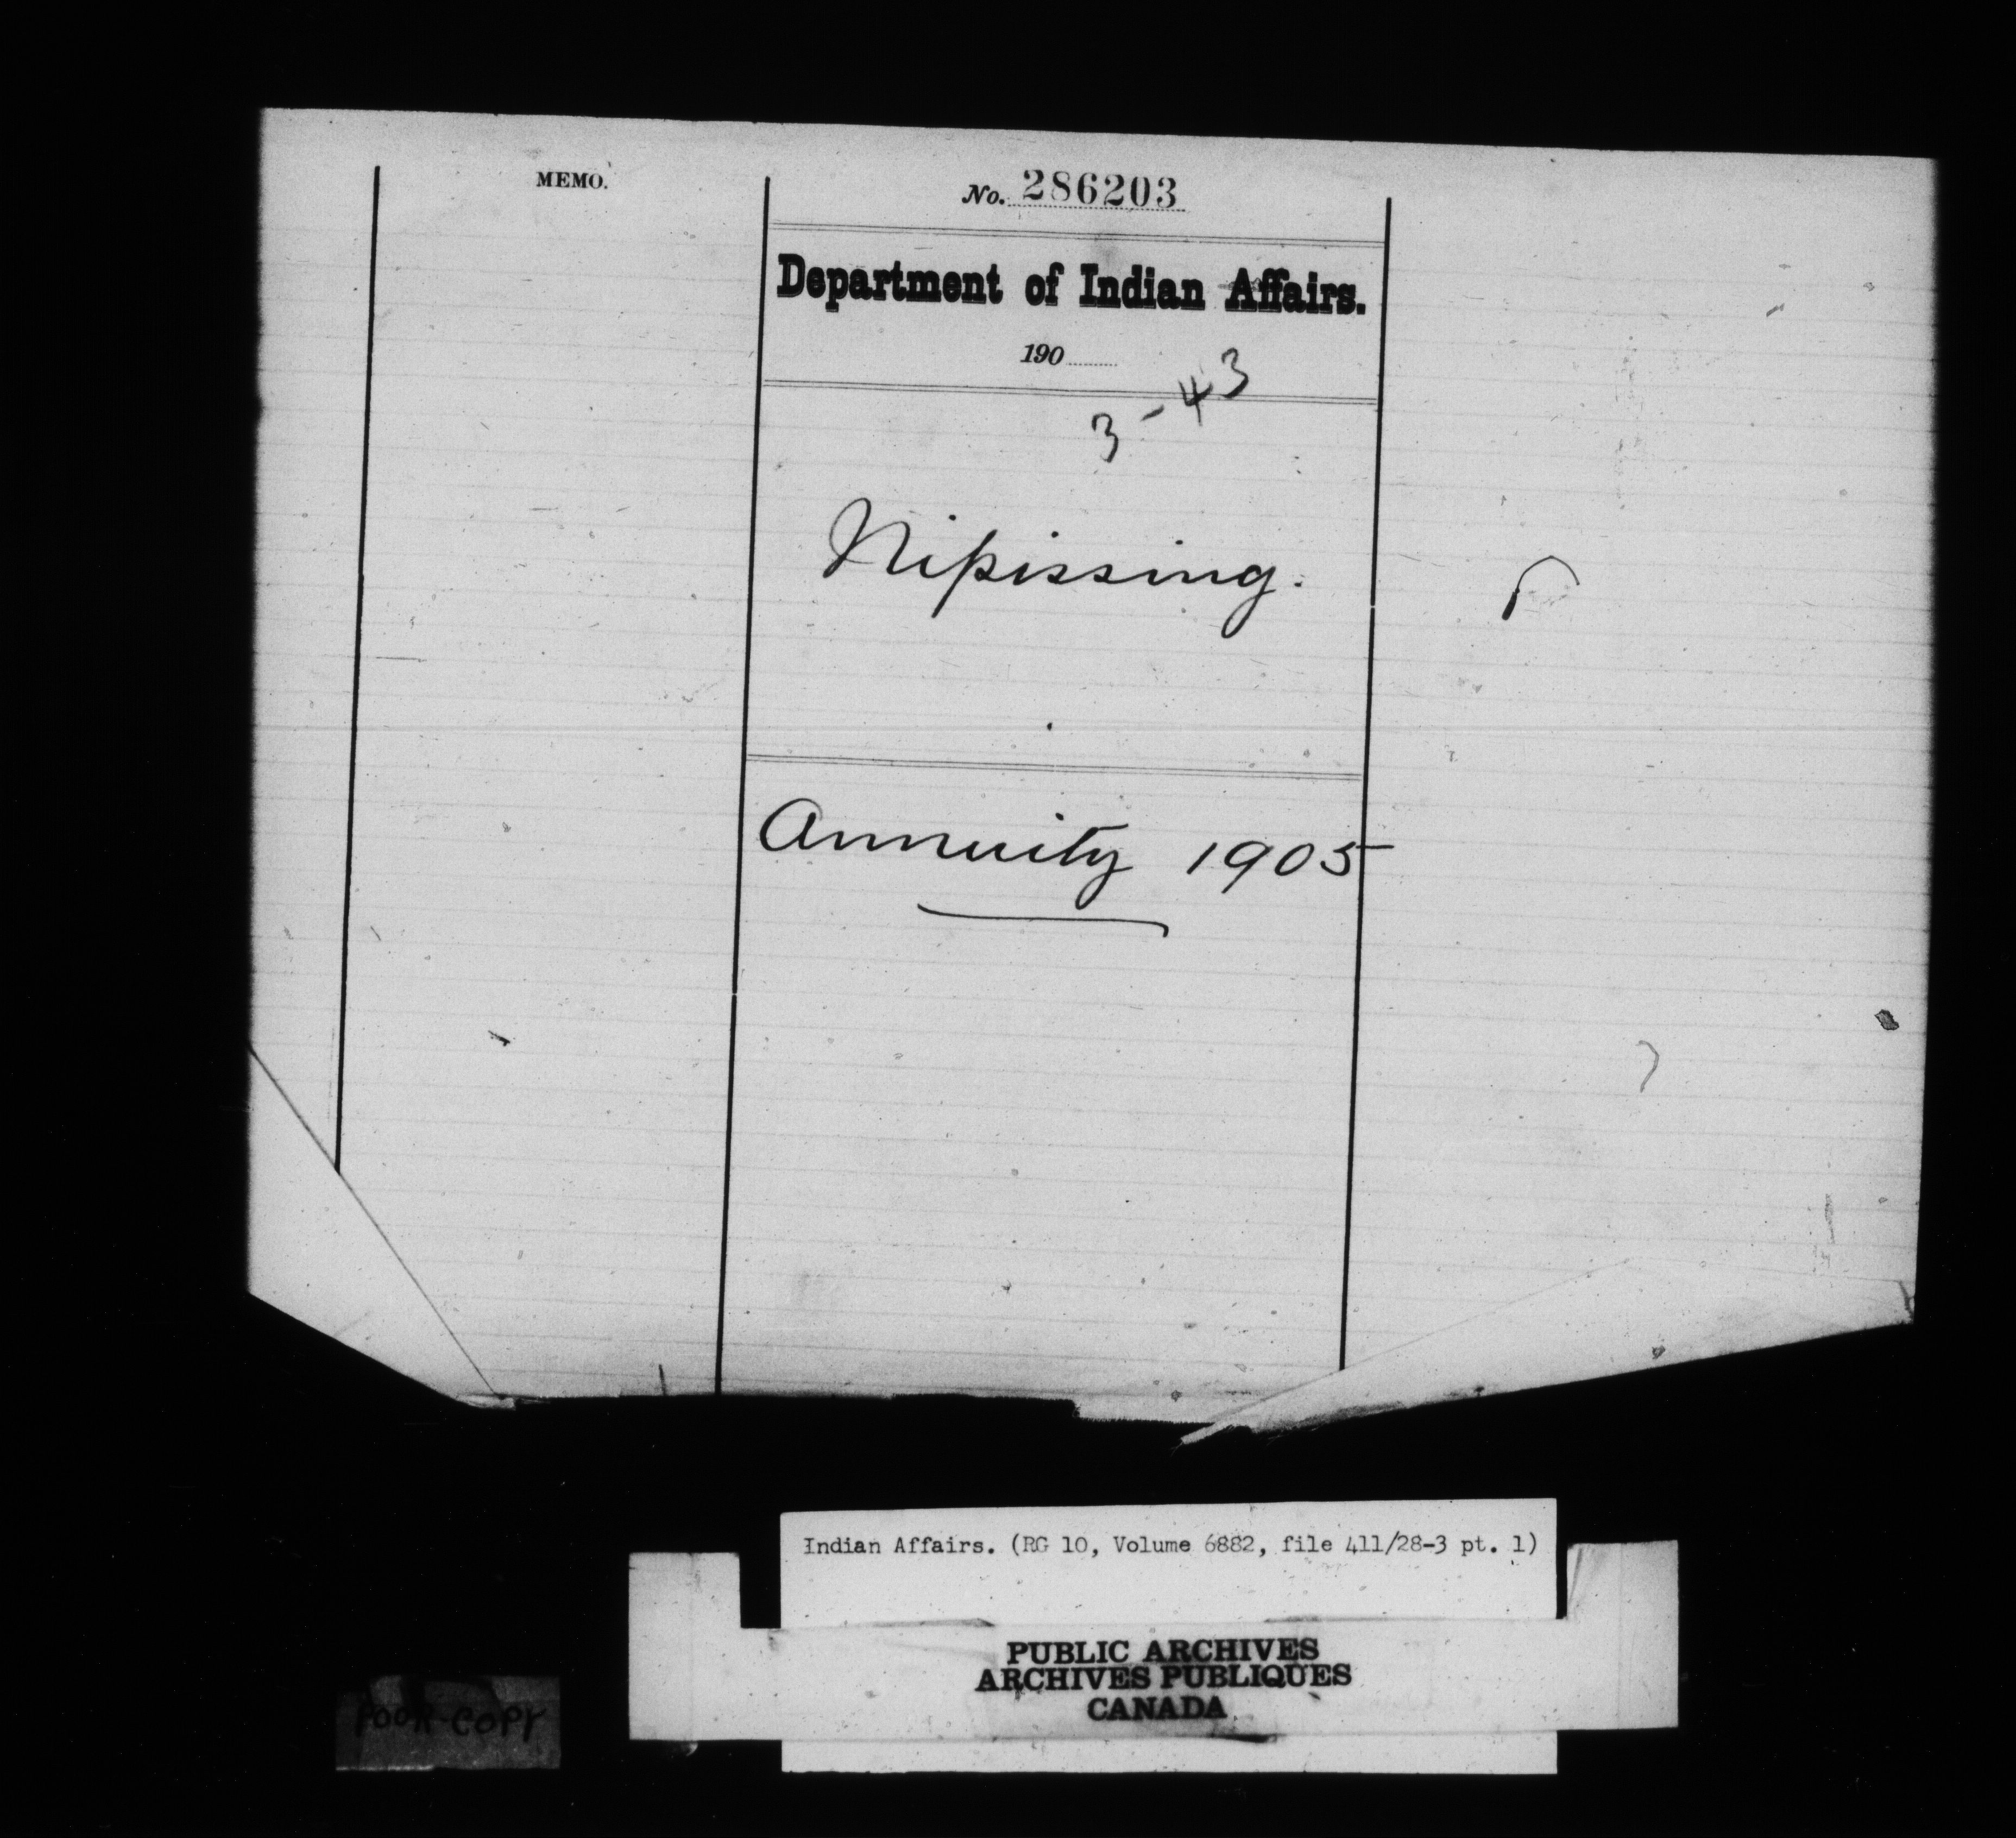 MEMO.
No. 286203
Department of Indian Affairs.
190
3-43
Nipissing.
Annuity 1905
Indian Affairs. (RG 10, Volume 6882, file 411/28-3 pt. 1)
PUBLIC ARCHIVES
ARCHIVES PUBLIQUES
CANADA
POOR COPY